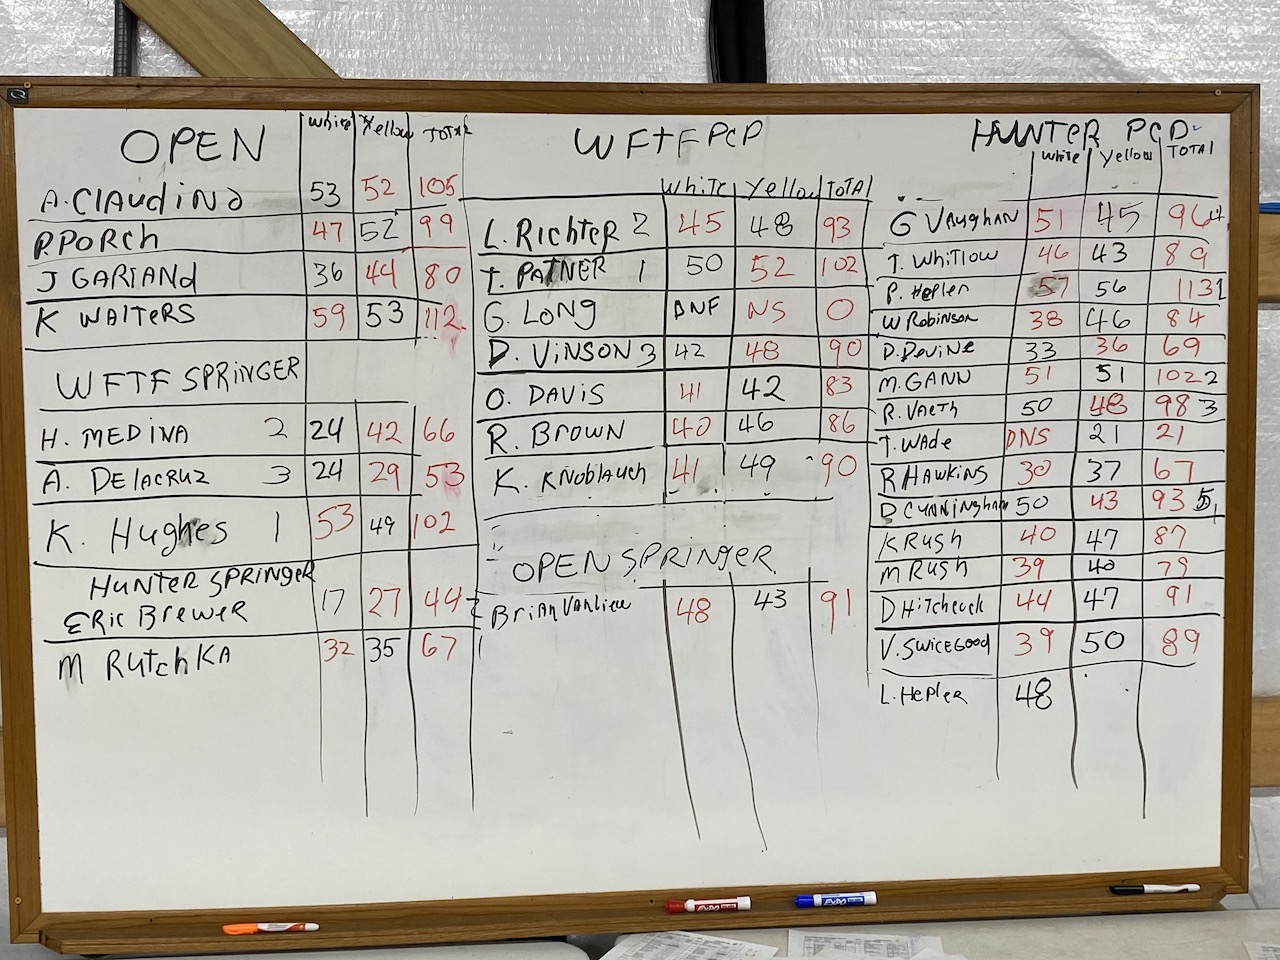 OPEN White Yellow TOTAL
A. Claudino 53 52 105
P. PORCh 47 52 99
J GARLANd 36 44 80
K WALTERS 59 53 112
WFTF SPRINGER
H. MEDINA 2 24 42 66
A. DElacRuz 3 24 29 53
K. Hughes 1 53 49 102
HUNTER SPRINGER
ERic BREWER 17 27 44 2
M RutchKA 32 35 67 1
WFTF PCP
White Yellow TOTAL
L. Richter 2 45 48 93
T. PATNER 1 50 52 102
G. LONG DNF NS 0
D. VINSON 3 42 48 90
O. DAVIS 41 42 83
R. BROWN 40 46 86
K. KNoblauch 41 49 90
OPEN SPRINGER
BriAN VanLieu 48 43 91
HUNTER PCP
White Yellow TOTAL
G VAughAN 51 45 96 4
T. WhiTlow 46 43 89
P. HePler 57 56 113 1
W RobiNSON 38 46 84
D. DeviNe 33 36 69
M. GANN 51 51 102 2
R. VaeTh 50 48 98 3
T. WAde DNS 21 21
R HAWKINS 30 37 67
D CUNNiNghAM 50 43 93 5
K RUSh 40 47 87
M RUSh 39 40 79
D HiTchcock 44 47 91
V. SWiceGood 39 50 89
L. HePleR 48
EXPO
EXPO